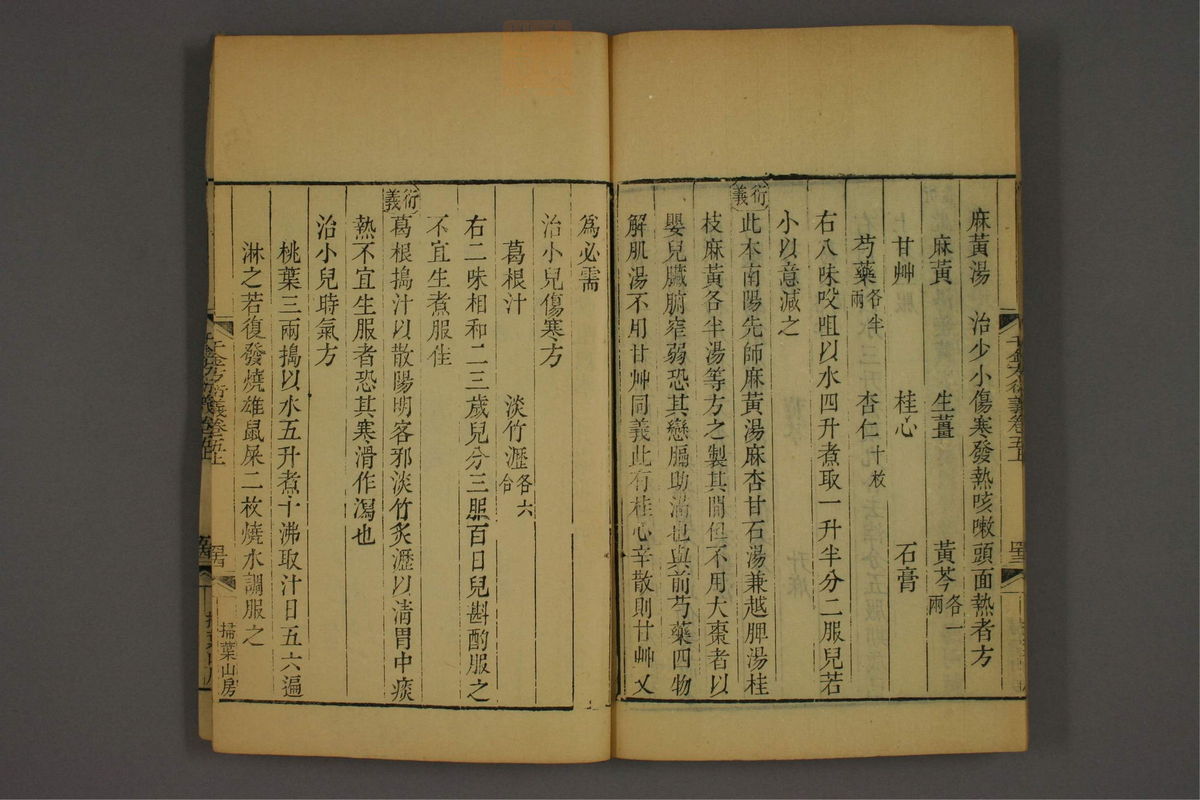 麻黃湯 治少小傷寒發熱咳嗽頭面熱者方
麻黃 生薑 黃芩各一兩
甘艸 桂心 石膏
芍藥各半兩 杏仁十枚
右八味㕮咀以水四升煮取一升半分二服兒若
小以意減之
衍義
此本南陽先師麻黃湯麻杏甘石湯兼越脾湯桂
枝麻黃各半湯等方之製其間但不用大棗者以
嬰兒臟腑窄弱恐其戀膈助滿也與前芍藥四物
解肌湯不用甘艸同義此有桂心辛散則甘艸又
爲必需
治小兒傷寒方
葛根汁 淡竹瀝各六合
右二味相和二三歲兒分三服百日兒斟酌服之
不宜生煮服佳
衍義
葛根搗汁以散陽明客邪淡竹炙瀝以清胃中痰
熱不宜生服者恐其寒滑作瀉也
治小兒時氣方
桃葉三兩搗以水五升煮十沸取汁日五六遍
淋之若復發燒雄鼠屎二枚燒水調服之
千金方衍義卷五上
掃葉山房